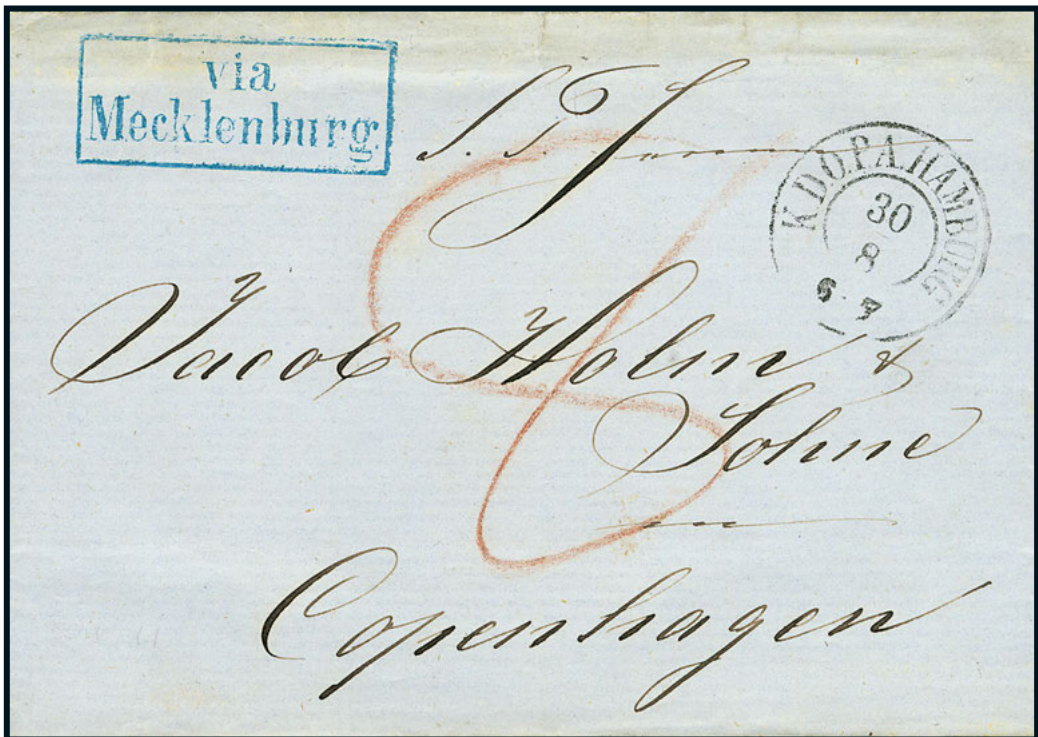 via
Mecklenburg.
S. T.
K. D. O. P. A. HAMBURG
30
8
6-7
Jacob Holm &
Söhne
Copenhagen